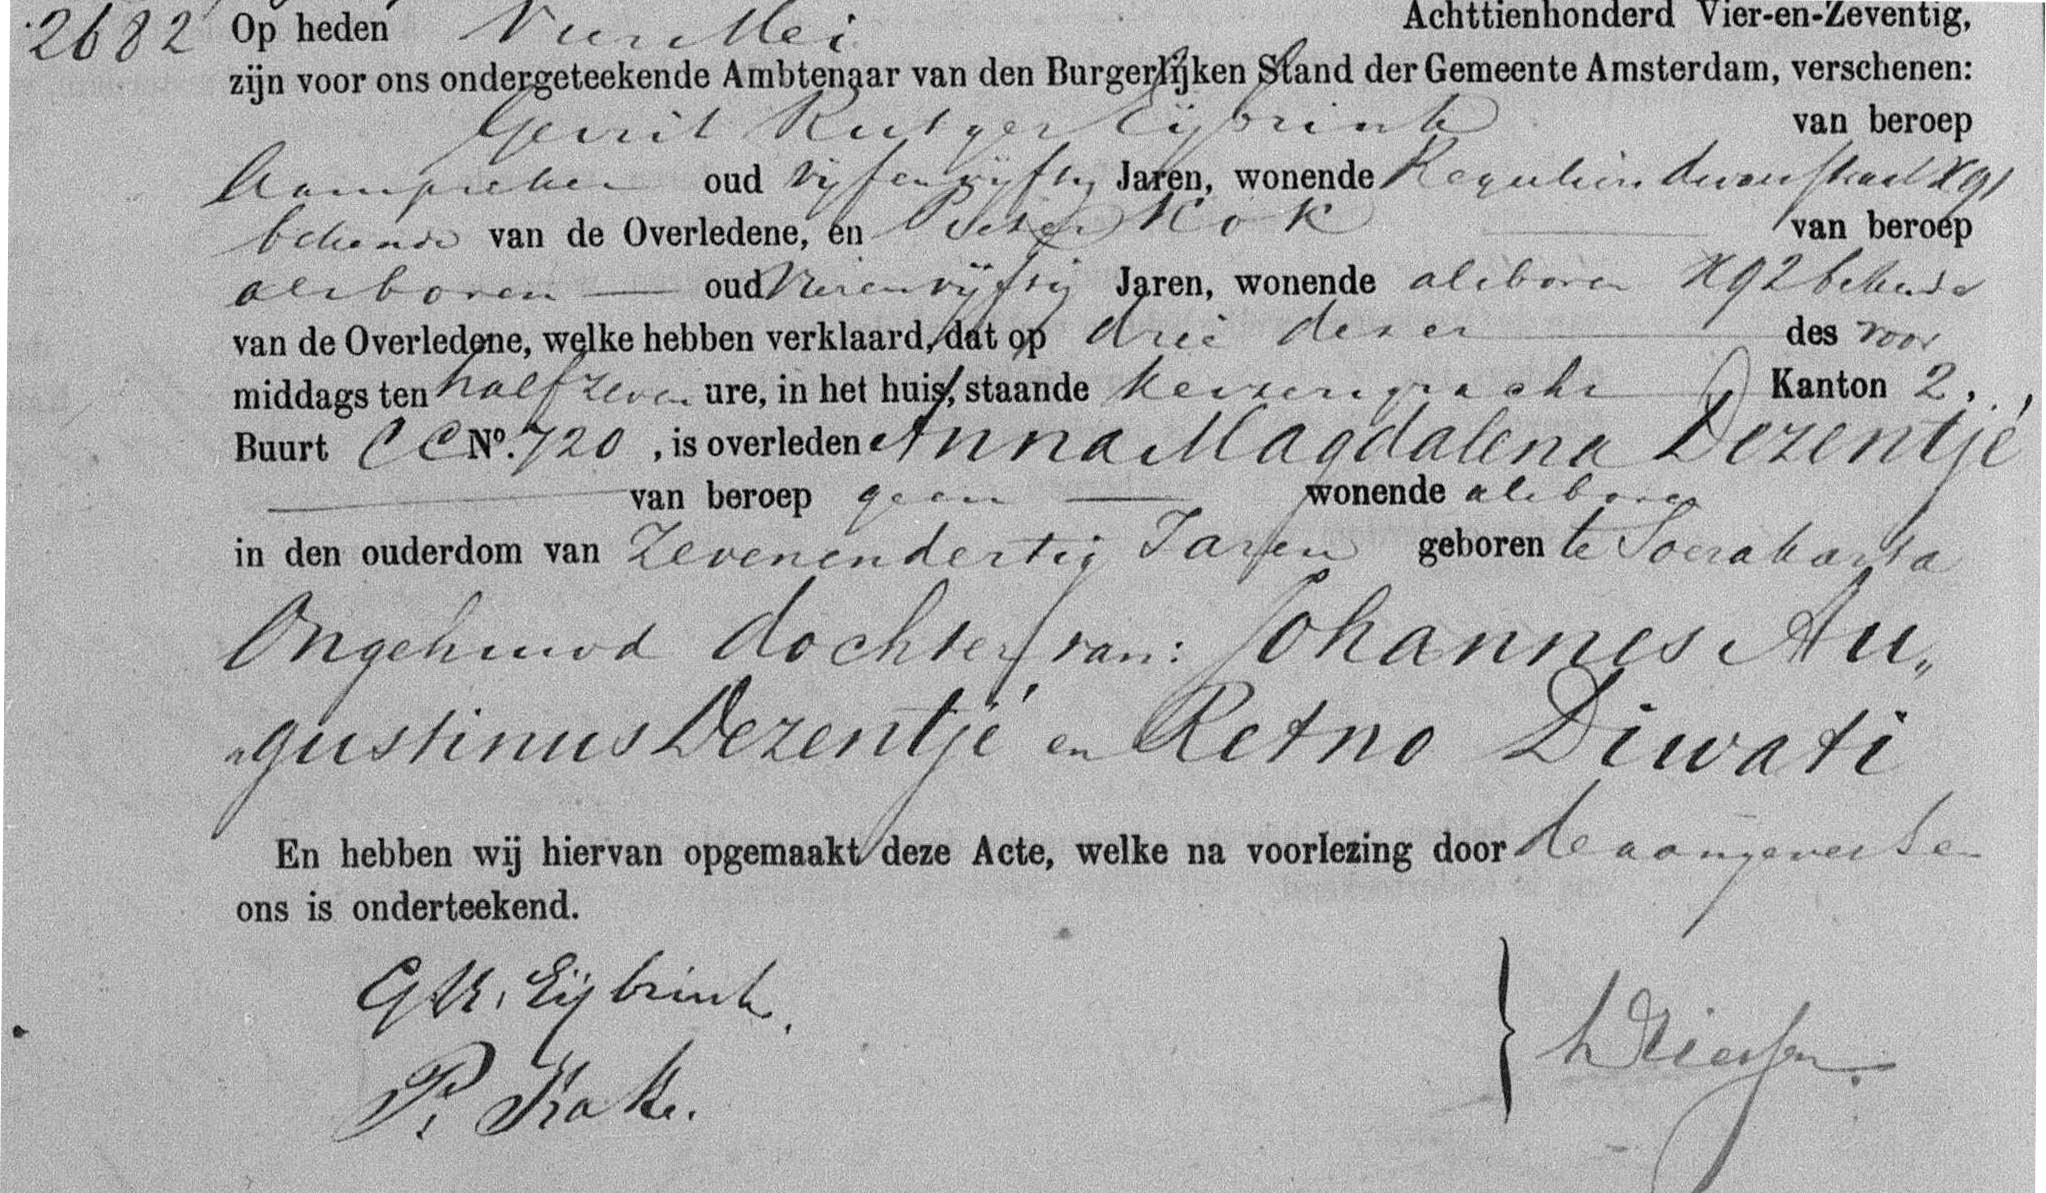 2682 Op heden Vier Mei Achttienhonderd Vier-en-Zeventig,
zijn voor ons ondergeteekende Ambtenaar van den Burgerlijken Stand der Gemeente Amsterdam, verschenen:
Gerrit Rutger Eijbrink van beroep
Aanspreker oud vijfenvijftig Jaren, wonende Reguliersdwarsstraat X91
bekende van de Overledene, en Pieter Kok van beroep
alsboven oud Vierenvijftig Jaren, wonende alsboven X92 bekende
van de Overledene, welke hebben verklaard, dat op drie dezer des voor
middags ten half zeven ure, in het huis, staande Keizersgracht Kanton 2.
Buurt CC No. 720, is overleden Anna Magdalena Dezentjé
van beroep geen wonende alsboven
in den ouderdom van Zevenendertig Jaren geboren te Soerakarta
Ongehuwd dochter van: Johannes Au„
„gustinus Dezentjé en Retno Diwati
En hebben wij hiervan opgemaakt deze Acte, welke na voorlezing door de aangevers en
ons is onderteekend.
G.R. Eijbrink.
P. Kok.